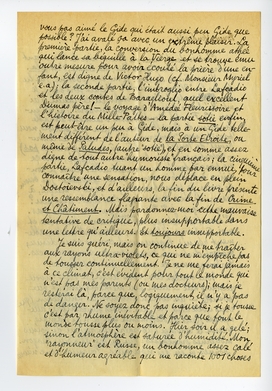 vous pas aimé le Gide qui était aussi peu Gide que
possible? J'ai avalé ça avec un extrême plaisir. La
première partie, la conversion du bonhomme affligé
qui lance sa béquille à la Vierge et se trouve ému
outre mesure pour avoir écouté la prière d'une en-
fant, est digne de Victor Hugo (et Monseigneur Myriel
e.a.); la seconde partie, l'imbroglio entre Lafcadio
et les deux comtes de Baraglioul, quel excellent
Dumas père! — le voyage d'Amédée Fleurissoire et
l'histoire du Mille-Pattes — la partie sotie enfin,
est peut-être un peu à Gide, mais à un Gide telle-
ment différent de l'auteur de la Porte Etroite, ou
même de Paludes, (autre sotie), et en somme assez
digne de tout autre humoriste français; la cinquième
partie, Lafcadio tuant un homme par ennui, pour
connaître une sensation, nous déplace en plein
Dostoïevski, et d'ailleurs, la fin du livre présente
une ressemblance flagrante avec la fin de Crime
et Châtiment. Mais pardonnez-moi cette mauvaise
tentative de critique, plus insupportable dans
une lettre qu'ailleurs. Et toujours insupportable.
Je suis guéri, mais on continue de me traiter
aux rayons ultra-violets, ce que ne m'empêche pas
de tousser continuellement. Je ne me ferai jamais
à ce climat, c'est évident pour tout le monde qui
n'est pas mes parents (ou mes docteurs); mais je
resterai là, parce que, logiquement, il n'y a pas
de danger. Ne soyez donc pas inquiète; si je tousse
c'est par rhume inévitable et parce que tout le
monde tousse plus ou moins. Hier soir il a gelé;
sinon l'atmosphère est saturée d'humidité. Mon
"rayonneur" est Russe, un bonhomme assez calé
et d'humeur agréable que me raconte 1001 choses